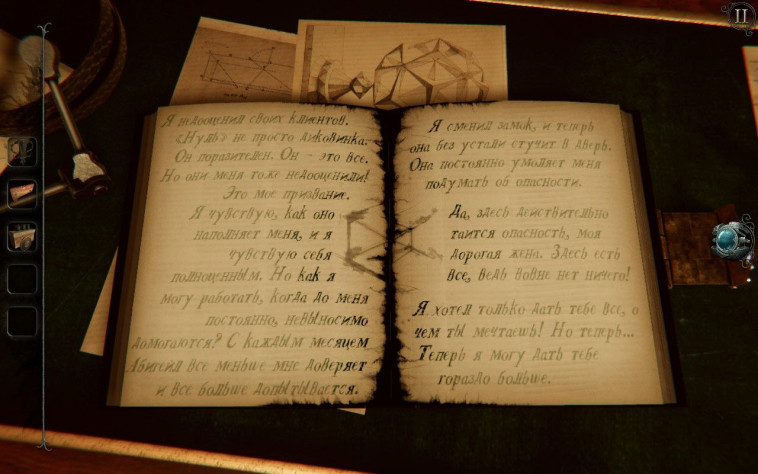 Я недооценил своих клиентов.
«Нуль» не просто диковинка.
Он поразителен. Он - это все.
Но они меня тоже недооценили!
Это мое призвание.
Я чувствую, как оно
наполняет меня, и я
чувствую себя
полноценным. Но как я
могу работать, когда до меня
постоянно, невыносимо
домогаются? С каждым месяцем
Абигейл все меньше мне доверяет
и все больше допытывается.
Я сменил замок, и теперь
она без устали стучит в дверь.
Она постоянно умоляет меня
подумать об опасности.
Да, здесь действительно
таится опасность, моя
дорогая жена. Здесь есть
все, ведь вовне нет ничего!
Я хотел только дать тебе все, о
чем ты мечтаешь! Но теперь...
Теперь я могу дать тебе
гораздо больше.